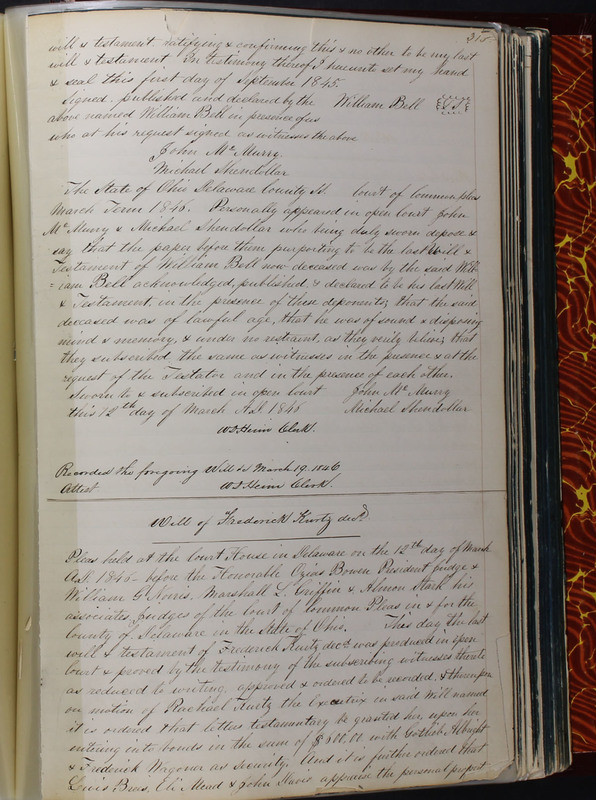 will & testament ratifying & confirming this & no other to be my last
will & testament. In testimony thereof I hereunto set my hand
& seal this first day of September 1845.
Signed, published and declared by the William Bell
above named William Bell in presence of us
who at his request signed as witnesses the above
John Mc Murry
Michael Shendollar
The State of Ohio Delaware County Ss. Court of Common pleas
March Term 1846. Personally appeared in open Court John
Mc Murry & Michael Shendollar who being duly sworn depose &
say that the paper before them purporting to be the last Will &
Testament of William Bell now deceased was by the said Will
=iam Bell acknowledged, published, & declared to be his last Will
& Testament, in the presence of these deponents; that the said
deceased was of lawful age, that he was of sound & disposing
mind & memory, & under no restraint, as they verily believe; that
they subscribed the same as witnesses in the presence & at the
request of the Testator and in the presence of each other.
Sworn to & subscribed in open Court John Mc Murry
this 12th day of March A.D. 1846 Michael Shendollar
Clerk.
Recorded the foregoing Will &c March 19. 1846
Attest Clerk.
Will of Frederick Kurtz decd
Pleas held at the Court House in Delaware on the 12th day of March
A.D. 1846 before the Honorable Ozias Bowen President judge &
William G Norris, Marshall L. Griffin & Almon Stark his
associates, judges of the Court of Common Pleas in & for the
County of Delaware in the State of Ohio. This day the last
will & testament of Frederick Kurtz decd was produced in open
Court & proved by the testimony of the subscribing witnesses thereto
as reduced to writing, approved & ordered to be recorded, & thereupon
on motion of Rachael Kurtz the Executrix in said Will named
it is ordered that letters testamentary be granted her, upon her
entering into bonds in the sum of $600.00 with Gotlieb Albright
& Frederick Wagoner as security. And it is further ordered that
Eli Mead & John appraise the personal propert